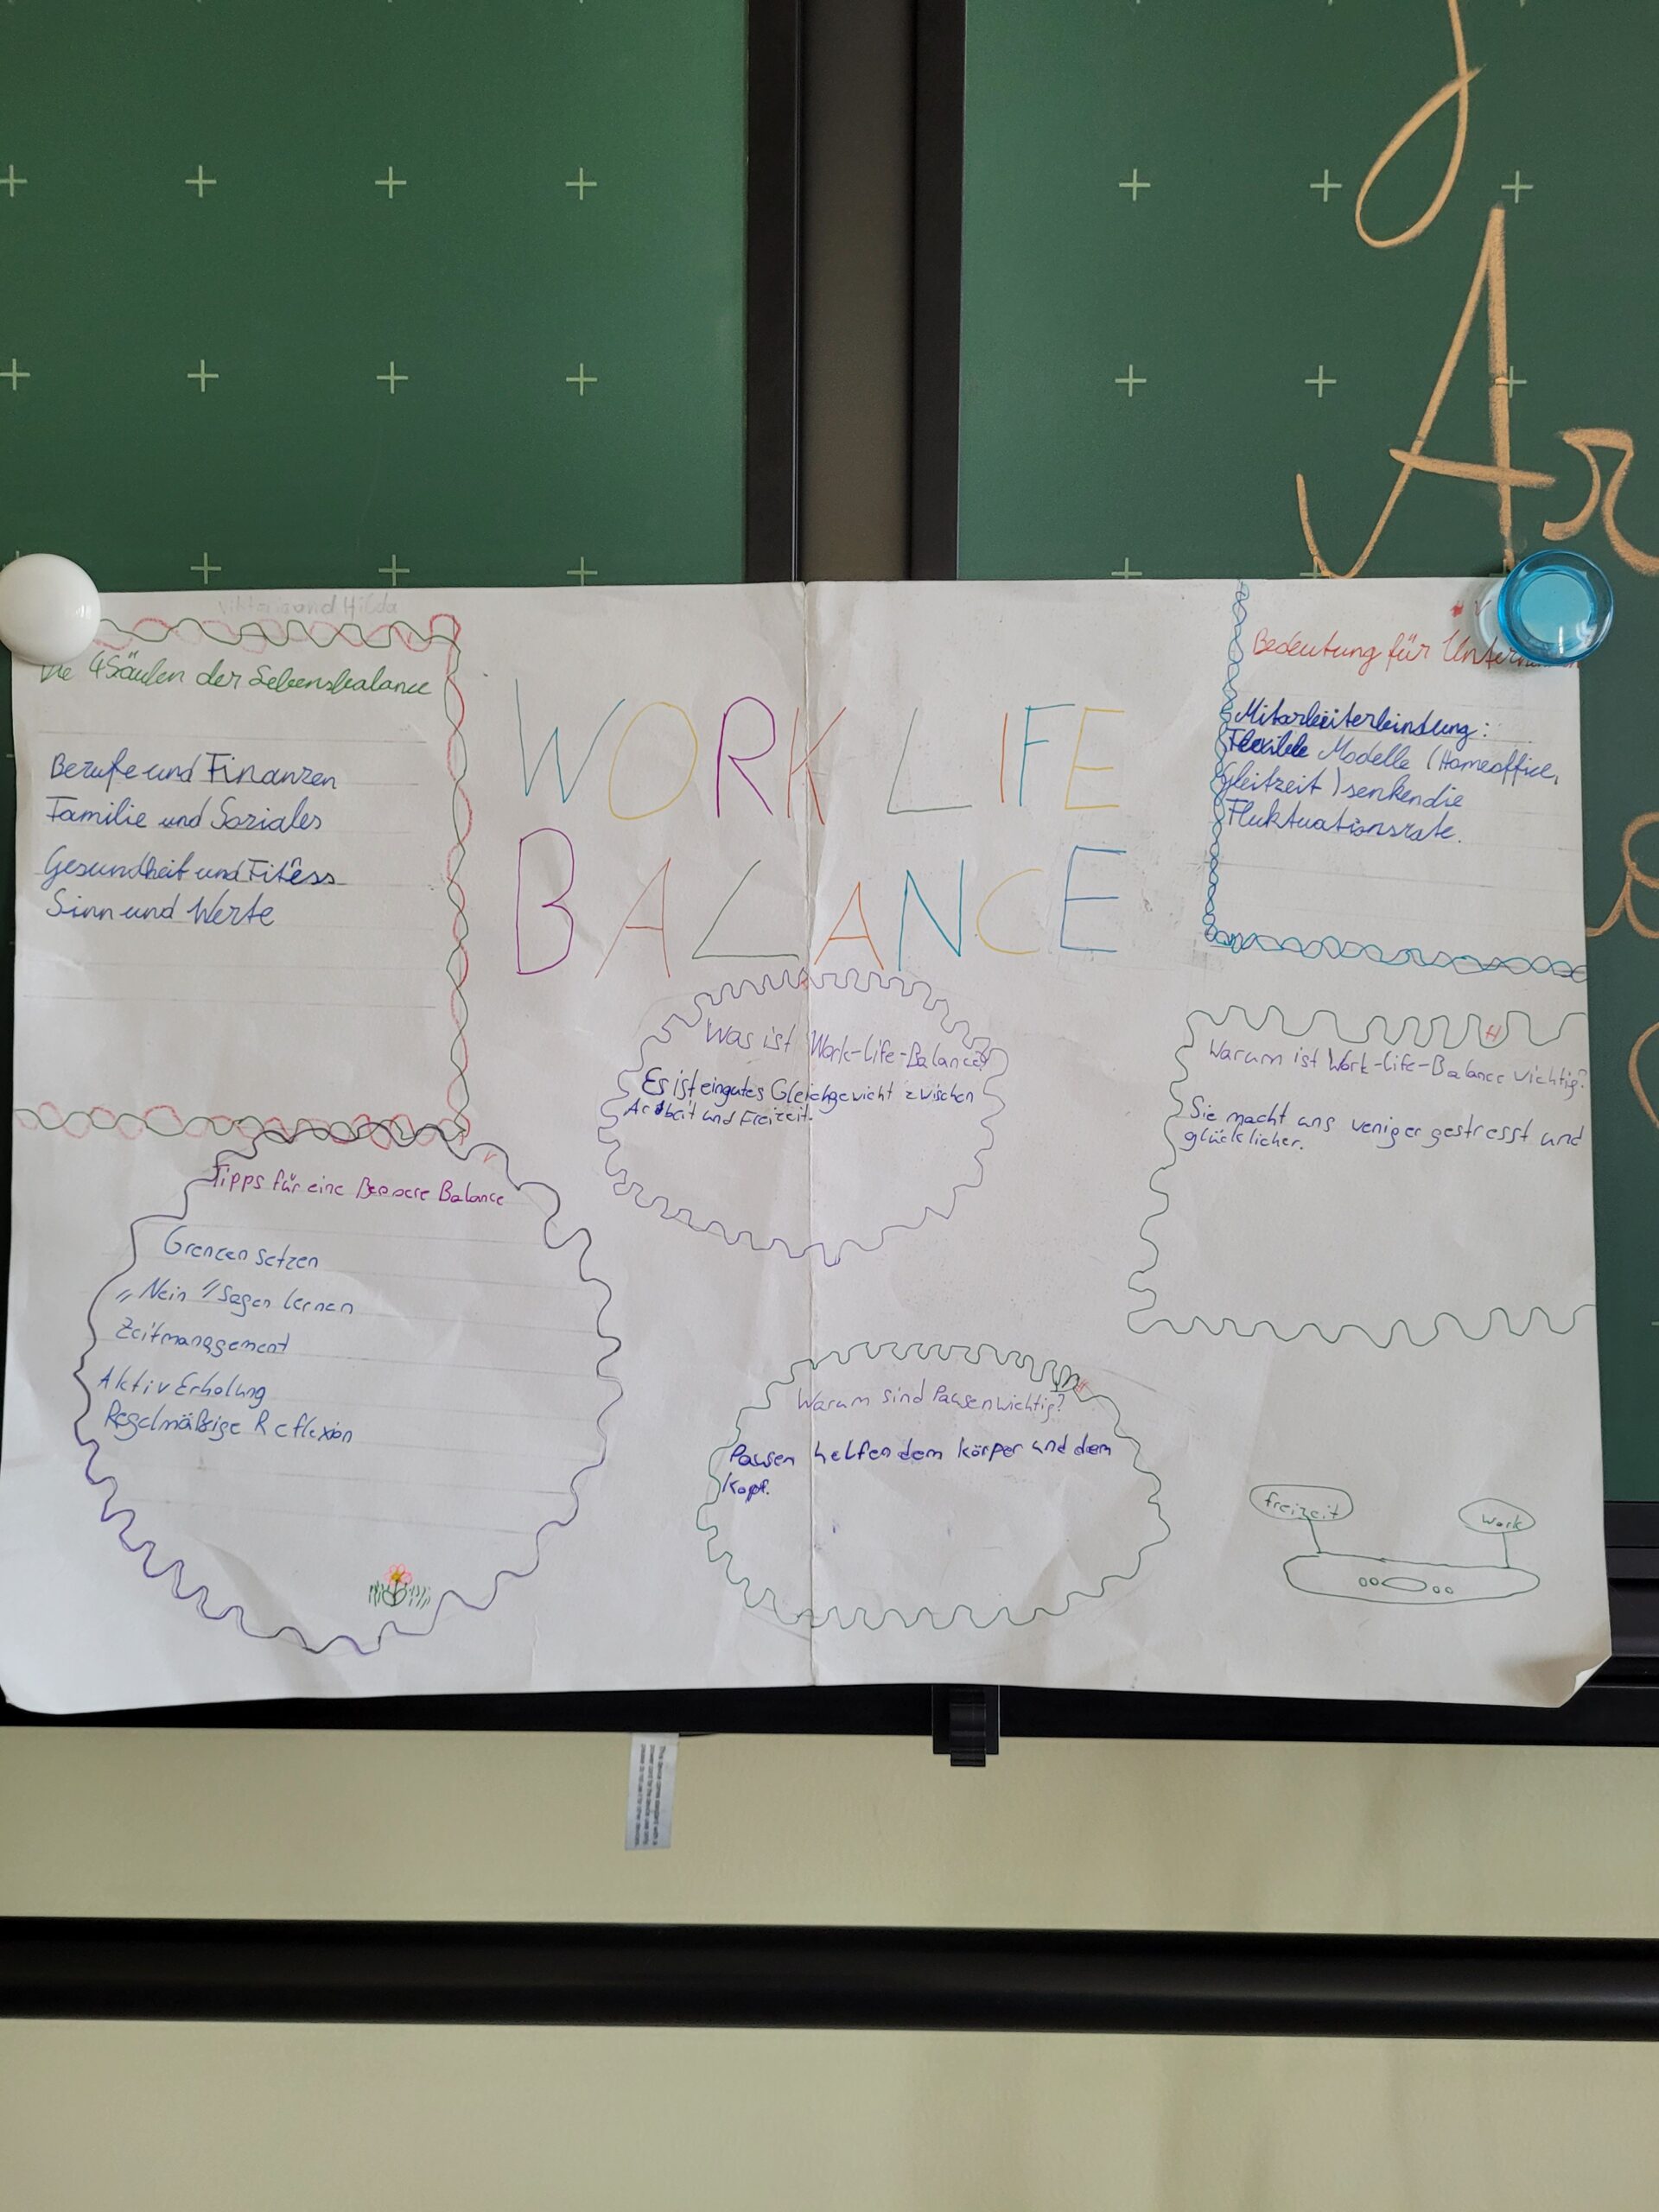 Viktoria und Hilda
Die 4 Säulen der Lebensbalance
Berufe und Finanzen
Familie und Soziales
Gesundheit und Fitness
Sinn und Werte
WORK LIFE
BALANCE
V
Bedeutung für
Mitarbeiterbindung:
Flexible Modelle (Homeoffice,
Gleitzeit) senken die
Fluktuationsrate.
Was ist Work-Life-Balance?
Es ist ein gutes Gleichgewicht zwischen
Arbeit und Freizeit.
H
Warum ist Work-Life-Balance wichtig?
Sie macht uns weniger gestresst und
glücklicher.
V
Tipps für eine Bessere Balance
Grenzen setzen
"Nein" Sagen lernen
Zeitmanagement
Aktiv Erholung
Regelmäßige Reflexion
H
Warum sind Pausen wichtig?
Pausen helfen dem Körper und dem
Kopf.
freizeit
work
Ar